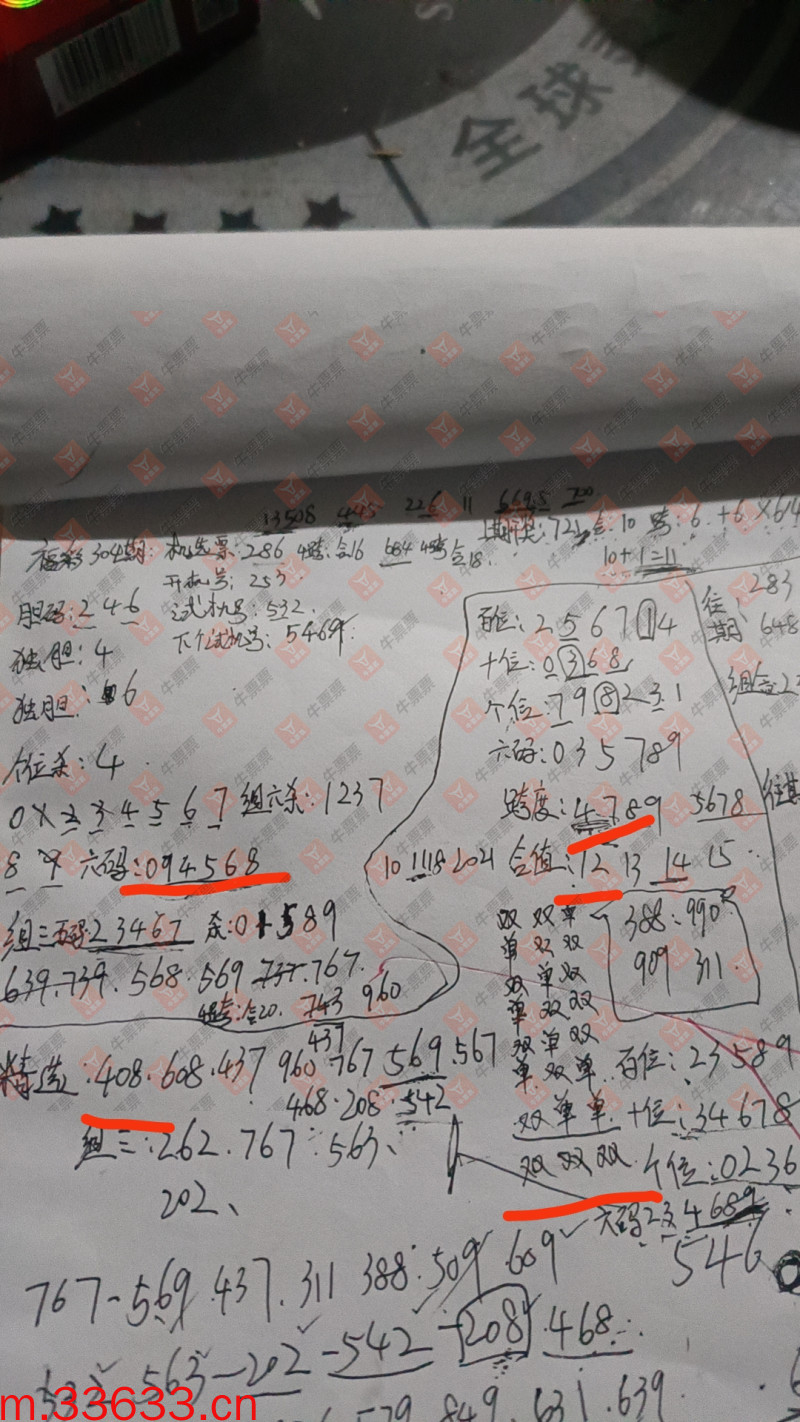 全球
牛票票
13508 445 226 11 669.8 700
福彩304期: 机选票:286 4跨:合16 684 4跨合18.
上期开奖:721 合.10 跨:6.
10+1=11
开机号: 283.
胆码:246 试机号:532.
下个试机号:5469
独胆:4
独胆:6
个位杀:4
百位:256714
十位:0368
个位:798231
六码:035789
往期 283
648
组合2
组六杀:1237
8 9 六码:094568
跨度:4789 5678
10 11 18 2021 合值:12 13 14 15
组三五码:23467 杀:01589
639.739.568.569 737.767.
合20. 743 960
437
双双单
单双双
双单双
单双双
双单双
单双单
双单单
双双双
388.990
909 311
精选:408.608.437 960.767 569.567
468.208.542
组三:262.767 563、
202、
百位:23589
十位:34678
个位:0236
六码234689
546
767-569.437.311 388.509.609
563-202-542-208.468
579.849.631.639.
m.33633.cn